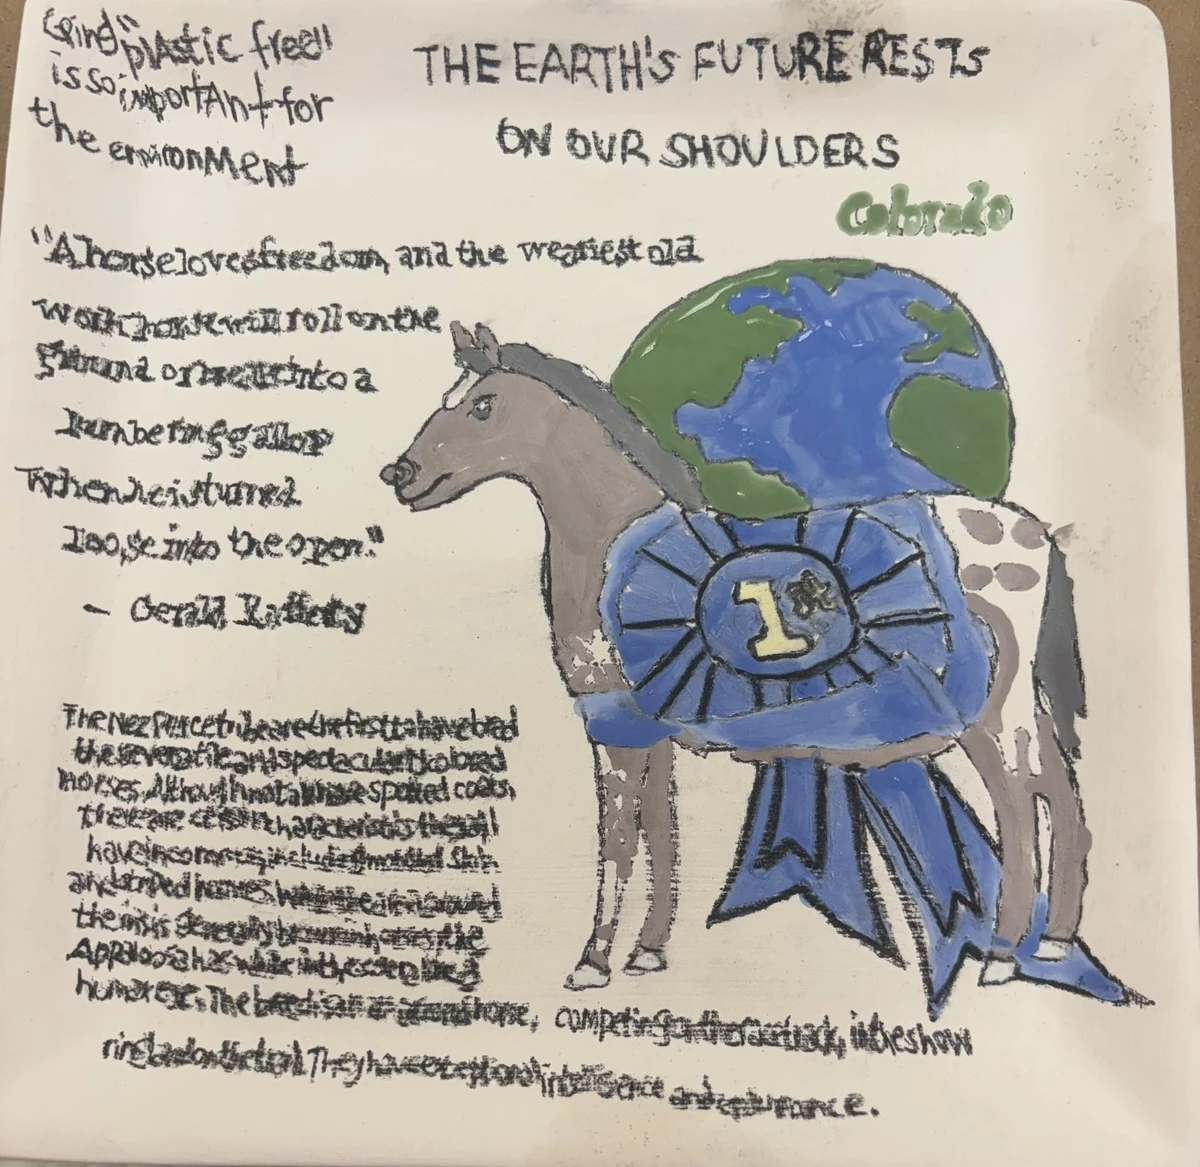 Going "plastic free"
is so important for
the environment
THE EARTH'S FUTURE RESTS
ON OUR SHOULDERS
Colorado
"A horse loves freedom, and the weariest old
work horse will roll on the
ground or break into a
lumbering gallop
when he is turned
loose into the open."
- Gerald Raftery
1st
The Nez Perce tribe are the first to have bred
these versatile and spectacularly colored
horses. Although not all have spotted coats,
there are certain characteristics they all
have in common, including mottled skin
and striped hooves. While the area around
the iris is generally brown in horses, the
Appaloosa has white in the eye like a
human eye. The breed is an all around horse, competing on the racetrack, in the show
ring and on the trail. They have exceptional intelligence and endurance.